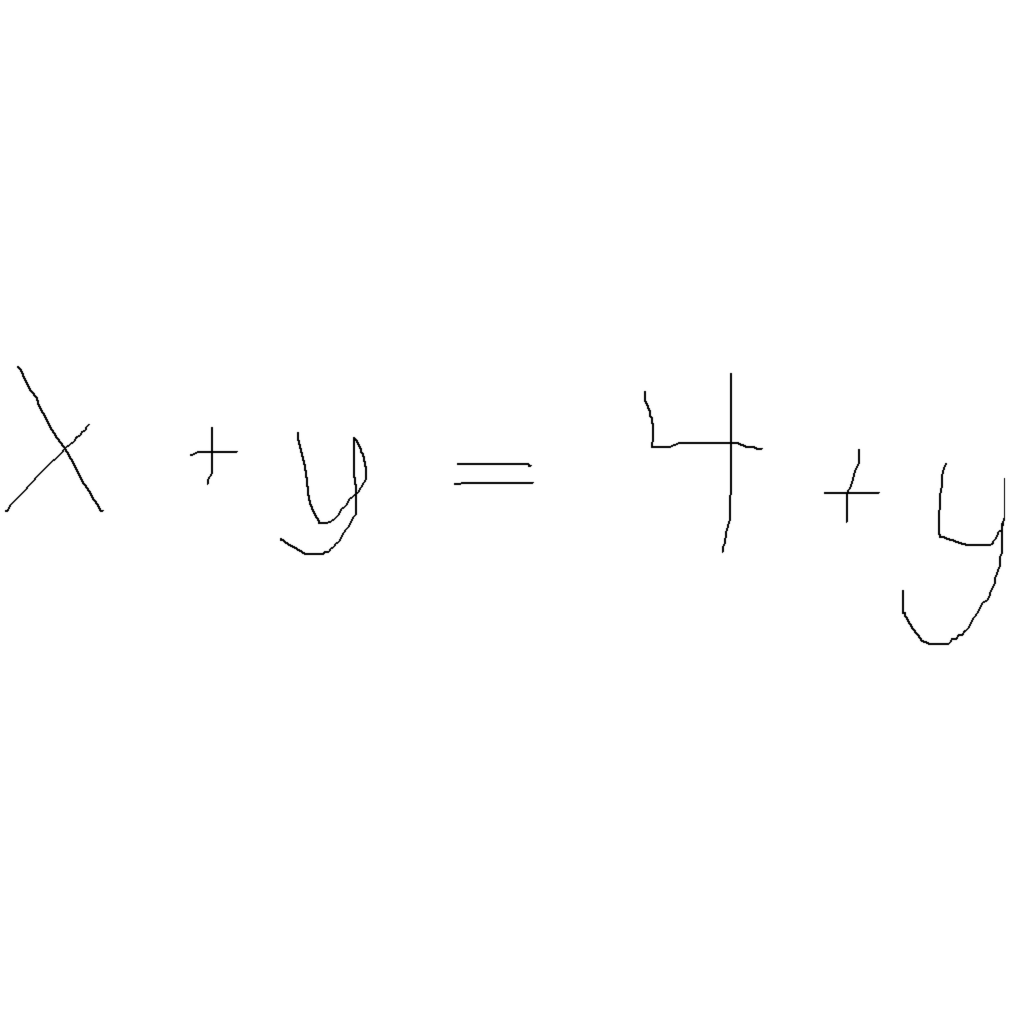 x + y = 4 + y